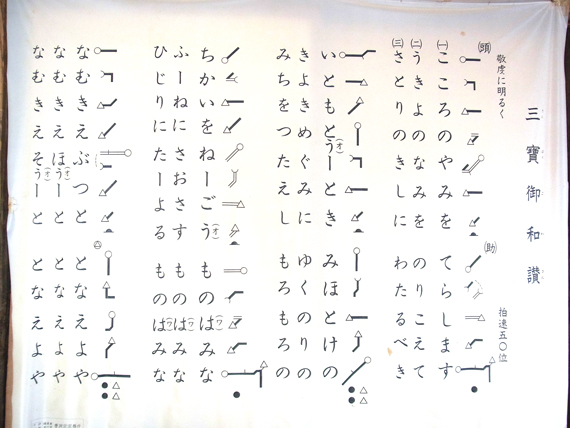 三寶御和讃
拍速五〇位
敬虔に明るく
(頭)
(助)
(一) こころのやみを てらします
(二) うきよのなみを のりこえて
(三) さとりのきしに わたるべき
いともとう(オ)ーとき みほとけの
きよきめぐみに ゆくのりの
みちをつたえし もろもろの
ちかいをねーごう(オ) ものは(ワ)みな
ふーねにさおさす ものは(ワ)みな
ひじりにたーよる ものは(ワ)みな
なむきえぶつと となえよや
なむきえほう(オ)ーと となえよや
なむきえそう(オ)ーと となえよや